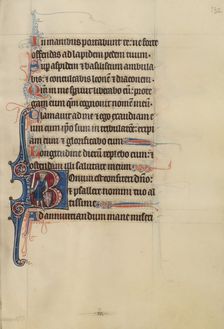 132
In manibus portabunt te: ne forte
offendas ad lapidem pedem tuum.
Sup aspidem & basiliscum ambula
bis: & conculcabis leonem & draconem.
Qm in me sperauit liberabo eum: prote
gam eum qm cognouit nomen meū.
Clamauit ad me & ego exaudiam e
um cum ipso sum in tribulatione: eripi
am eum & glorificabo eum
Longitudine dierū replebo eum: &
ostendam illi salutare meum
Bonum est confiteri dno:
& psallere nomini tuo al
tissime
Ad annuntiandum mane miseri